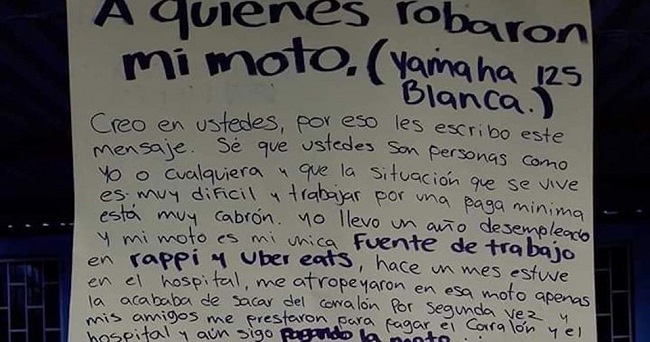 A quienes robaron
mi moto. (Yamaha 125
Blanca.)
Creo en ustedes, por eso les escribo este
mensaje. Sé que ustedes son personas como
yo o cualquiera y que la situación que se vive
es muy dificil y trabajar por una paga minima
está muy cabrón. yo llevo un año desempleado
y mi moto es mi unica Fuente de trabajo
en rappi y Uber eats, hace un mes estuve
en el hospital, me atropeyaron en esa moto apenas
la acababa de sacar del corralón por segunda vez y
mis amigos me prestaron para pagar el corralón y el
hospital y aún sigo pagando la moto...